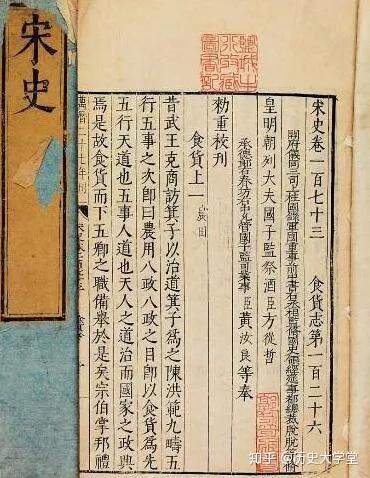 宋史
宋史卷一百七十三 食貨志第一百二十六
開府儀同三司上柱國錄軍國重事前中書右丞相監修國史領經筵事都總裁脫脫等修
皇明朝列大夫國子監祭酒臣方從哲
承德郎右春坊右中允管國子監司業事臣黃汝良等奉
勑重校刊
食貨上一 農田
昔武王克商訪箕子以治道箕子爲之陳洪範九疇五
行五事之次卽曰農用八政八政之目卽以食貨爲先
五行天道也五事人道也天人之道治而國家之政興
焉是故食貨而下五卿之職備舉於是矣宗伯掌邦禮
萬曆二十七年刊
知乎 @历史大学堂